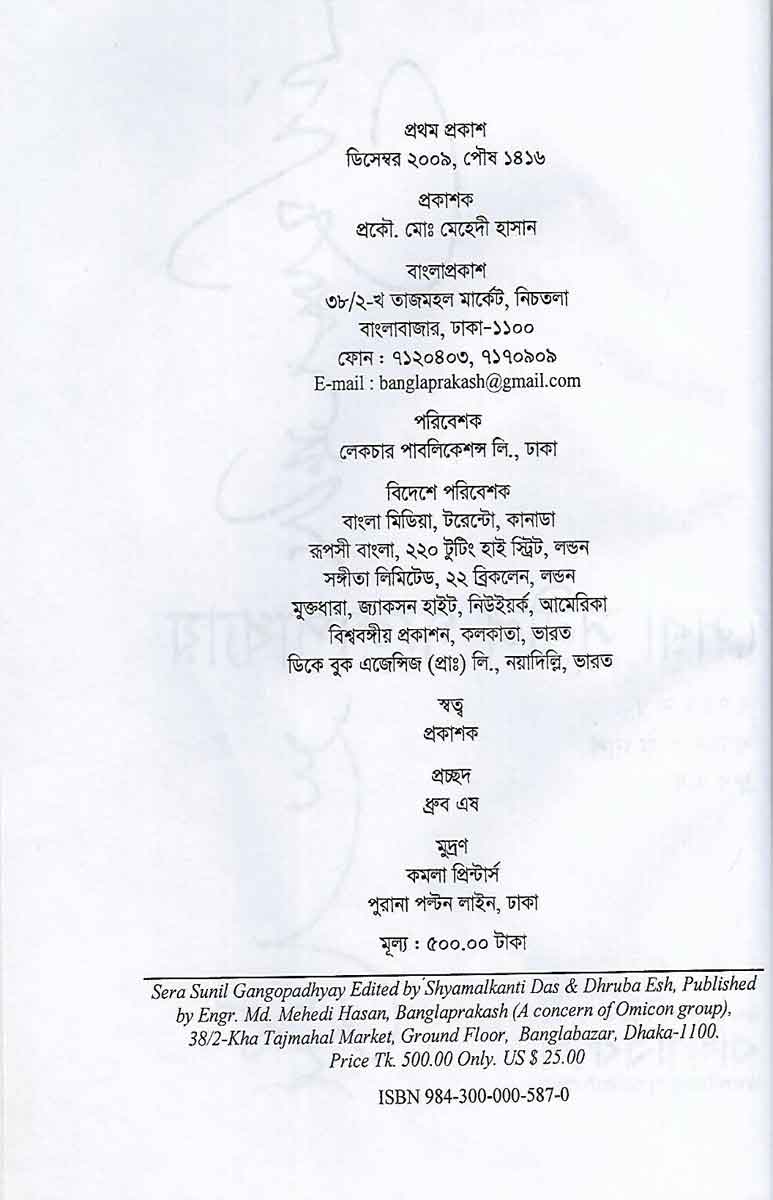 প্রথম প্রকাশ
ডিসেম্বর ২০০৯, পৌষ ১৪১৬
প্রকাশক
প্রকৌ. মোঃ মেহেদী হাসান
বাংলাপ্রকাশ
৩৮/২-খ তাজমহল মার্কেট, নিচতলা
বাংলাবাজার, ঢাকা-১১০০
ফোন : ৭১২০৪০৩, ৭১৭০৯০৯
E-mail : banglaprakash@gmail.com
পরিবেশক
লেকচার পাবলিকেশন্স লি., ঢাকা
বিদেশে পরিবেশক
বাংলা মিডিয়া, টরেন্টো, কানাডা
রূপসী বাংলা, ২২০ টুটিং হাই স্ট্রিট, লন্ডন
সঙ্গীতা লিমিটেড, ২২ ব্রিকলেন, লন্ডন
মুক্তধারা, জ্যাকসন হাইট, নিউইয়র্ক, আমেরিকা
বিশ্ববঙ্গীয় প্রকাশন, কলকাতা, ভারত
ডিকে বুক এজেন্সিজ (প্রাঃ) লি., নয়াদিল্লি, ভারত
স্বত্ব
প্রকাশক
প্রচ্ছদ
ধ্রুব এষ
মুদ্রণ
কমলা প্রিন্টার্স
পুরানা পল্টন লাইন, ঢাকা
মূল্য : ৫০০.০০ টাকা
Sera Sunil Gangopadhyay Edited by Shyamalkanti Das & Dhruba Esh, Published
by Engr. Md. Mehedi Hasan, Banglaprakash (A concern of Omicon group),
38/2-Kha Tajmahal Market, Ground Floor, Banglabazar, Dhaka-1100.
Price Tk. 500.00 Only. US $ 25.00
ISBN 984-300-000-587-0